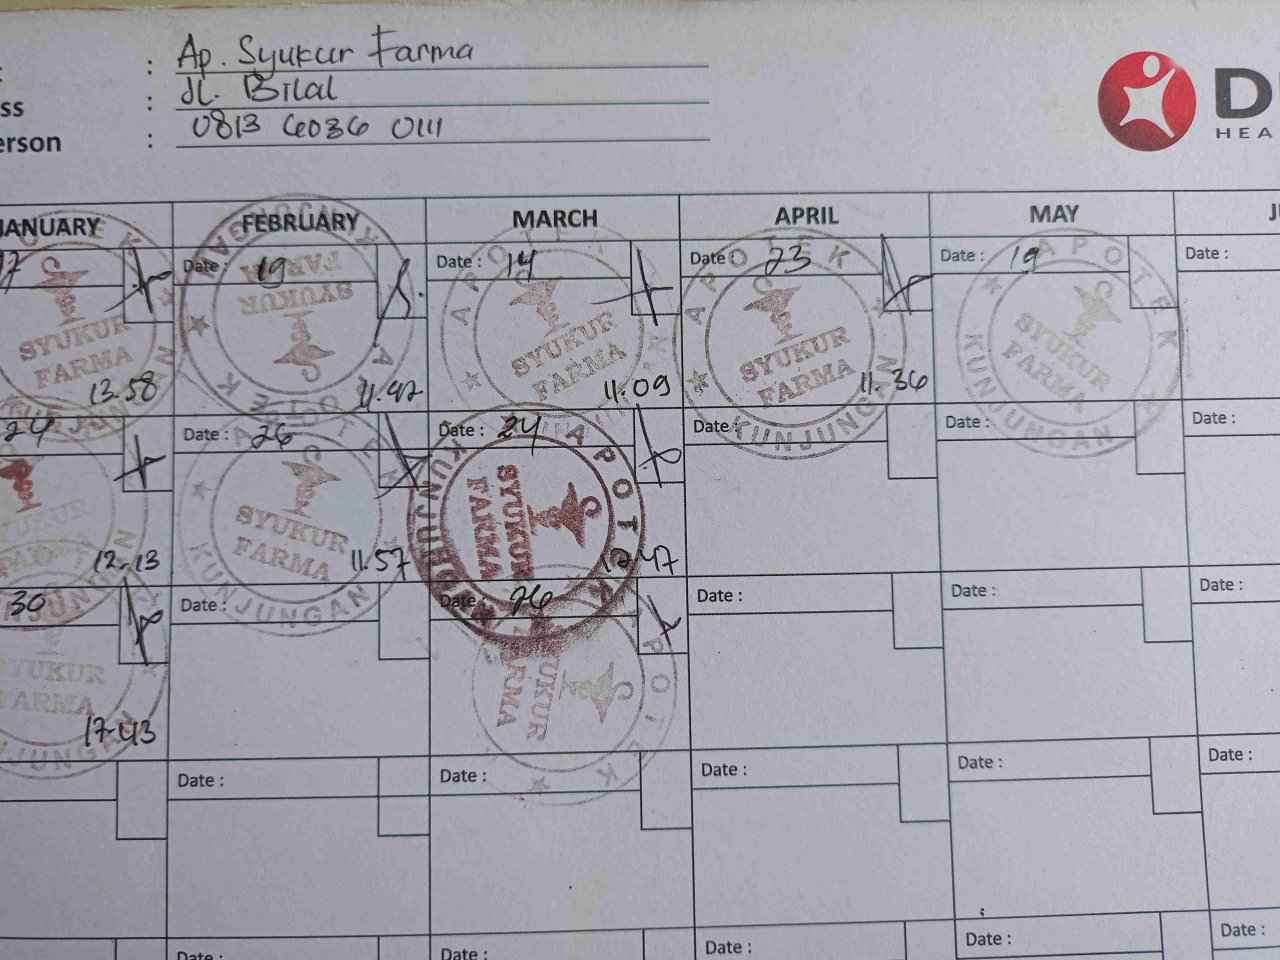 : Ap. Syukur Farma
ss : Jl. Bilal
erson : 0813 6036 0111
D
HEA
JANUARY FEBRUARY MARCH APRIL MAY J
17 Date : 19 Date : 14 Date : 23 Date : 19 Date :
APOTEK SYUKUR FARMA KUNJUNGAN
13.58 11.47 11.09 11.36
24 Date : 26 Date : 24 Date : Date : Date :
APOTEK SYUKUR FARMA KUNJUNGAN
12.13 11.57 12.47
30 Date : Date : 26 Date : Date : Date :
SYUKUR FARMA KUNJUNGAN
APOTEK SYUKUR FARMA
17.43
Date : Date : Date : Date : Date :
Date : Date : Date : Date : Date :